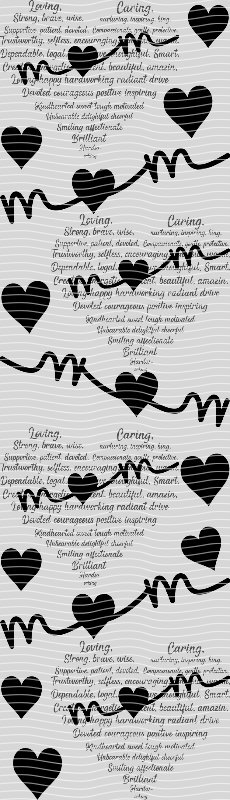 Loving, Caring.
Strong, brave, wise, nurturing, inspiring, king,
Supportive, patient, devoted, Compassionate, gentle, protective,
Trustworthy, selfless, encouraging
Dependable, loyal, thoughtful, Smart,
Creative, beautiful, amazin,
Loving happy hardworking radiant drive
Devoted courageous positive inspiring
Kindhearted sweet tough motivated
Unbearable delightful cheerful
Smiling affectionate
Brilliant
Hander
Loving, Caring.
Strong, brave, wise, nurturing, inspiring, king,
Supportive, patient, devoted, Compassionate, gentle, protective,
Trustworthy, selfless, encouraging
Dependable, loyal, Smart,
Creative, beautiful, amazin,
Loving happy hardworking radiant drive
Devoted courageous positive inspiring
Kindhearted sweet tough motivated
Unbearable delightful cheerful
Smiling affectionate
Brilliant
Hander
Loving, Caring.
Strong, brave, wise, nurturing, inspiring, king,
Supportive, patient, devoted, Compassionate, gentle, protective,
Trustworthy, selfless, encouraging
Dependable, loyal, thoughtful, Smart,
Creative, beautiful, amazin,
Loving happy hardworking radiant drive
Devoted courageous positive inspiring
Kindhearted sweet tough motivated
Unbearable delightful cheerful
Smiling affectionate
Brilliant
Hander
Loving, Caring.
Strong, brave, wise, nurturing, inspiring, king,
Supportive, patient, devoted, Compassionate, gentle, protective,
Trustworthy, selfless, encouraging
Dependable, loyal, Smart,
Creative, beautiful, amazin,
Loving happy hardworking radiant drive
Devoted courageous positive inspiring
Kindhearted sweet tough motivated
Unbearable delightful cheerful
Smiling affectionate
Brilliant
Hander